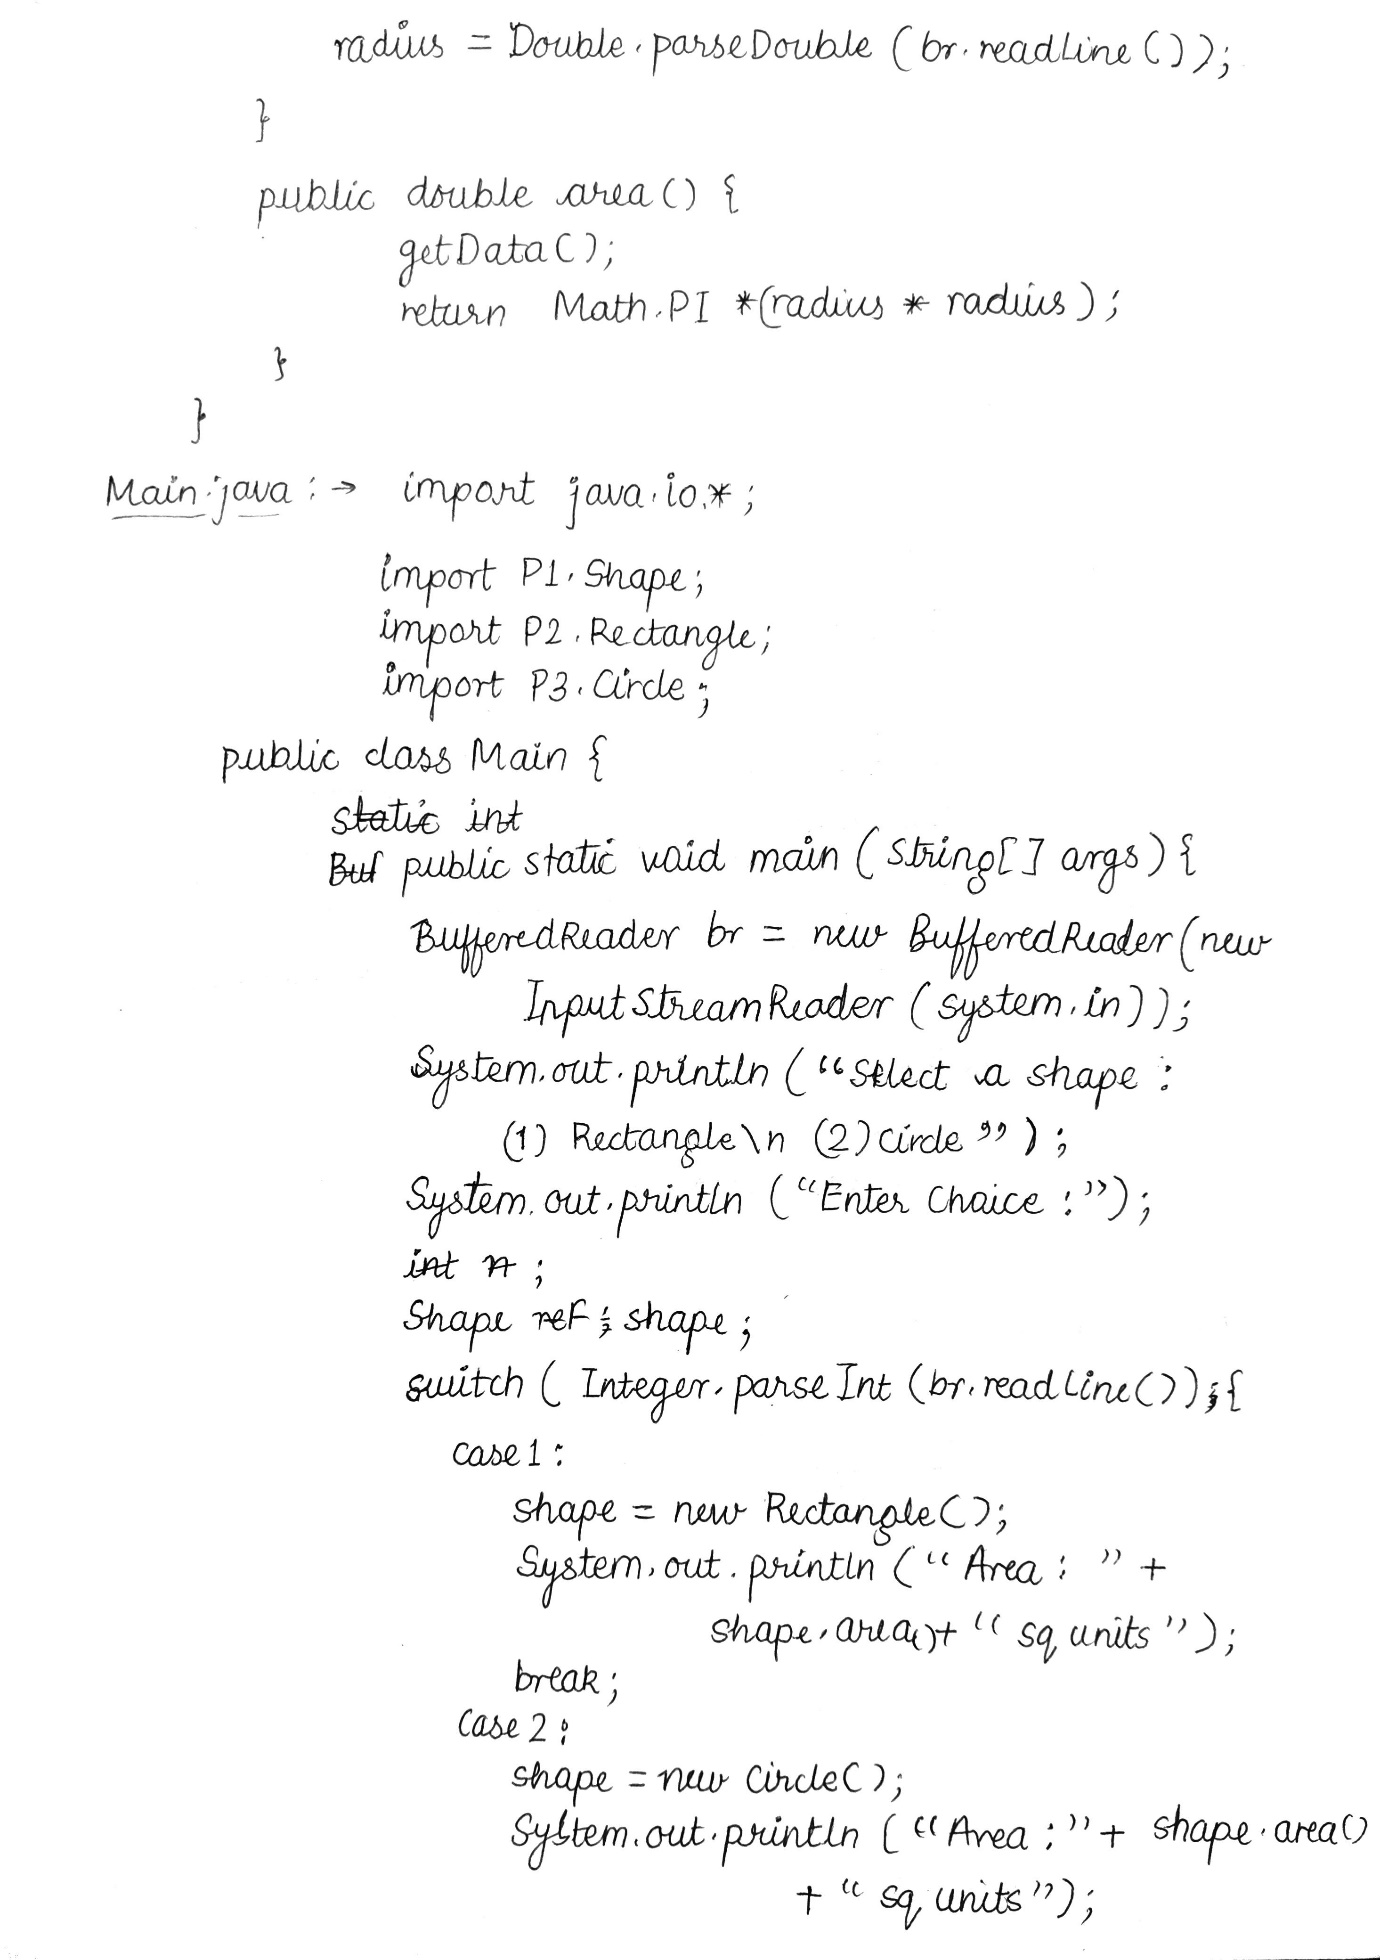 radius = Double.parseDouble (br.readLine());
}
public double area() {
getData();
return Math.PI *(radius * radius);
}
}
Main.java :→ import java.io.*;
import P1.Shape;
import P2.Rectangle;
import P3.Circle;
public class Main {
static int
Buf public static void main (String[] args) {
BufferedReader br = new BufferedReader(new
InputStreamReader (system.in));
System.out.println (“Select a shape :
(1) Rectangle\n (2)Circle”);
System.out.println (“Enter Choice :”);
int n ;
Shape ref ; shape;
switch ( Integer.parseInt (br.readLine());{
case 1 :
shape = new Rectangle();
System.out.println (“ Area : ” +
shape.area()+ “ sq units”);
break;
Case 2 :
shape = new Circle();
System.out.println (“Area :”+ shape.area()
+ “ sq units”);